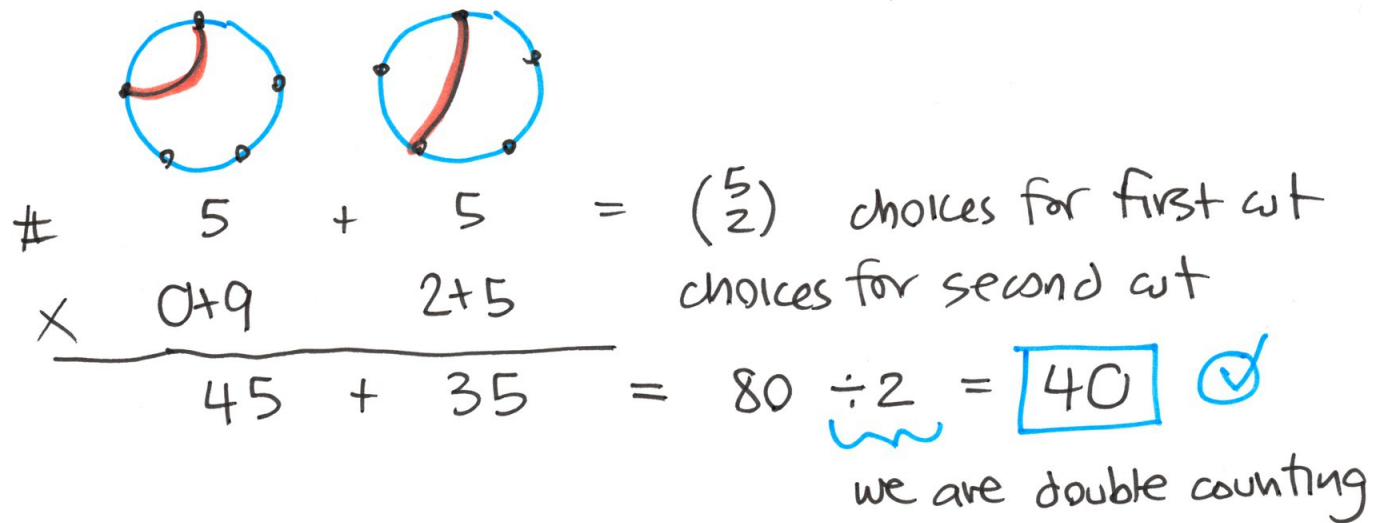 # 5 + 5 = (5 2) choices for first cut
× 0+9 2+5 choices for second cut
45 + 35 = 80 ÷2 = 40
we are double counting